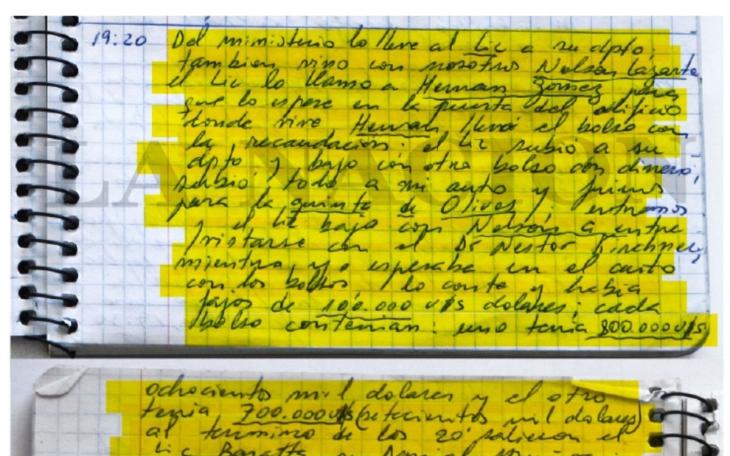 19:20 Del ministerio lo lleve al Lic a su dpto;
tambien vino con nosotros Nelson Lazarte,
el Lic lo llamo a Hernan Gomez para
que lo espere en la puerta del edificio
donde vive Hernan llevó el bolso con
la recaudación; el Lic subió a su
dpto y bajo con otro bolso con dinero,
subió todo a mi auto y fuimos
para la quinta de Olivos, entramos
y el Lic bajo con Nelson a entre
vistarse con el Dr Nestor Kirchner,
mientras yo esperaba en el auto
con los bolsos, lo conte y habia
fajos de 100.000 u$s dolares; cada
bolso contenian: uno tenia 800.000 u$s
ochocientos mil dolares y el otro
tenia 700.000 u$s (setecientos mil dolares)
al termino de los 20' salieron el
Lic Baratta
LA NACION